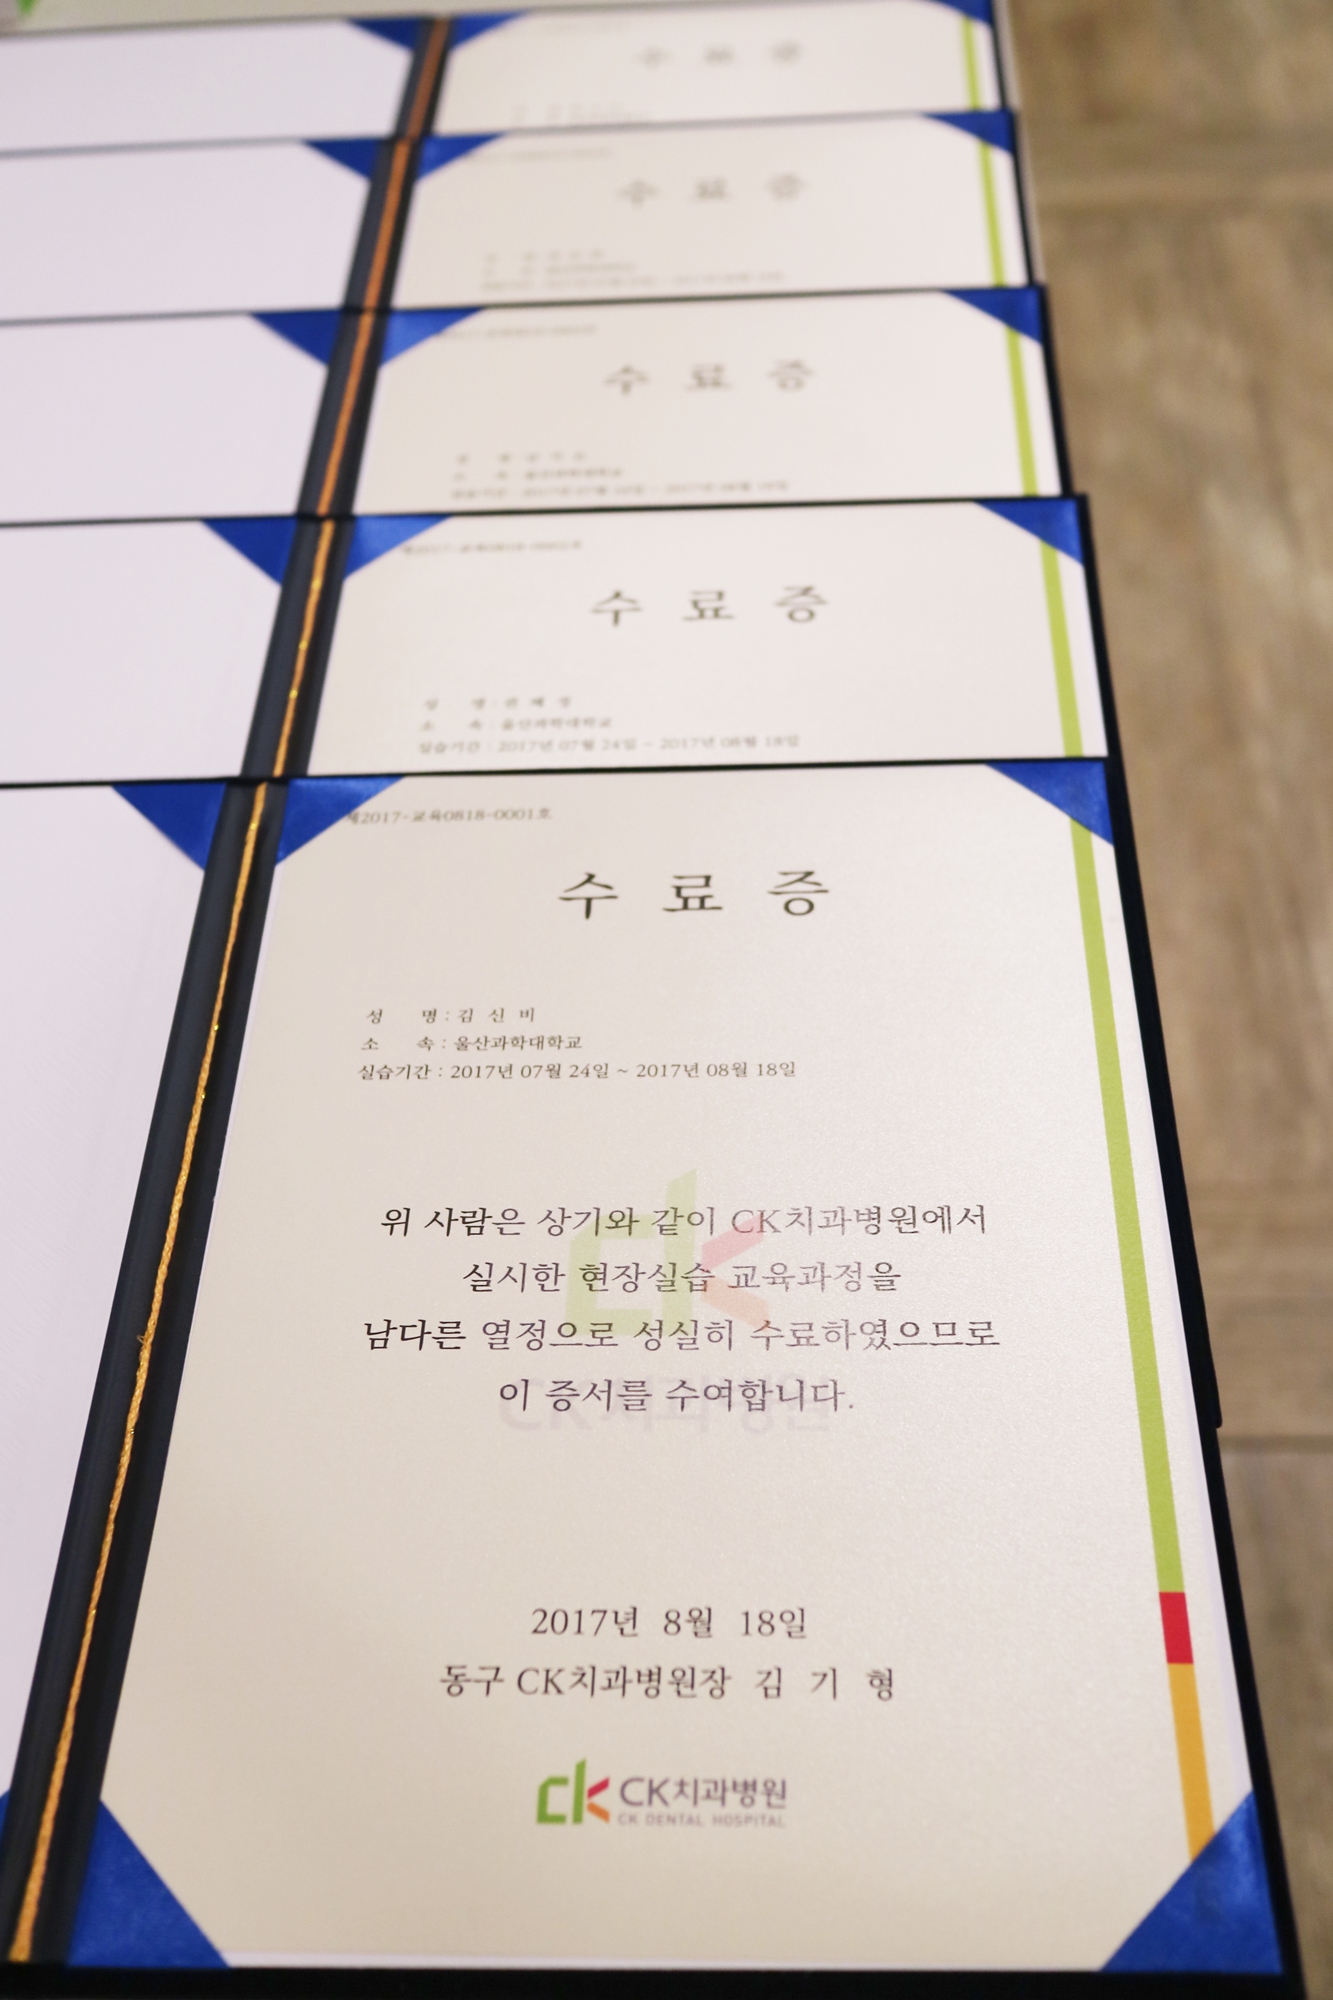 수 료 증
수 료 증
수 료 증
수 료 증
소 속 : 울산과학대학교
실습기간 : 2017년 07월 24일 ~ 2017년 08월 18일
제2017-교육0818-0001호
수 료 증
성 명 : 김 신 비
소 속 : 울산과학대학교
실습기간 : 2017년 07월 24일 ~ 2017년 08월 18일
위 사람은 상기와 같이 CK치과병원에서
실시한 현장실습 교육과정을
남다른 열정으로 성실히 수료하였으므로
이 증서를 수여합니다.
2017년 8월 18일
동구 CK치과병원장 김 기 형
ck CK치과병원
CK DENTAL HOSPITAL